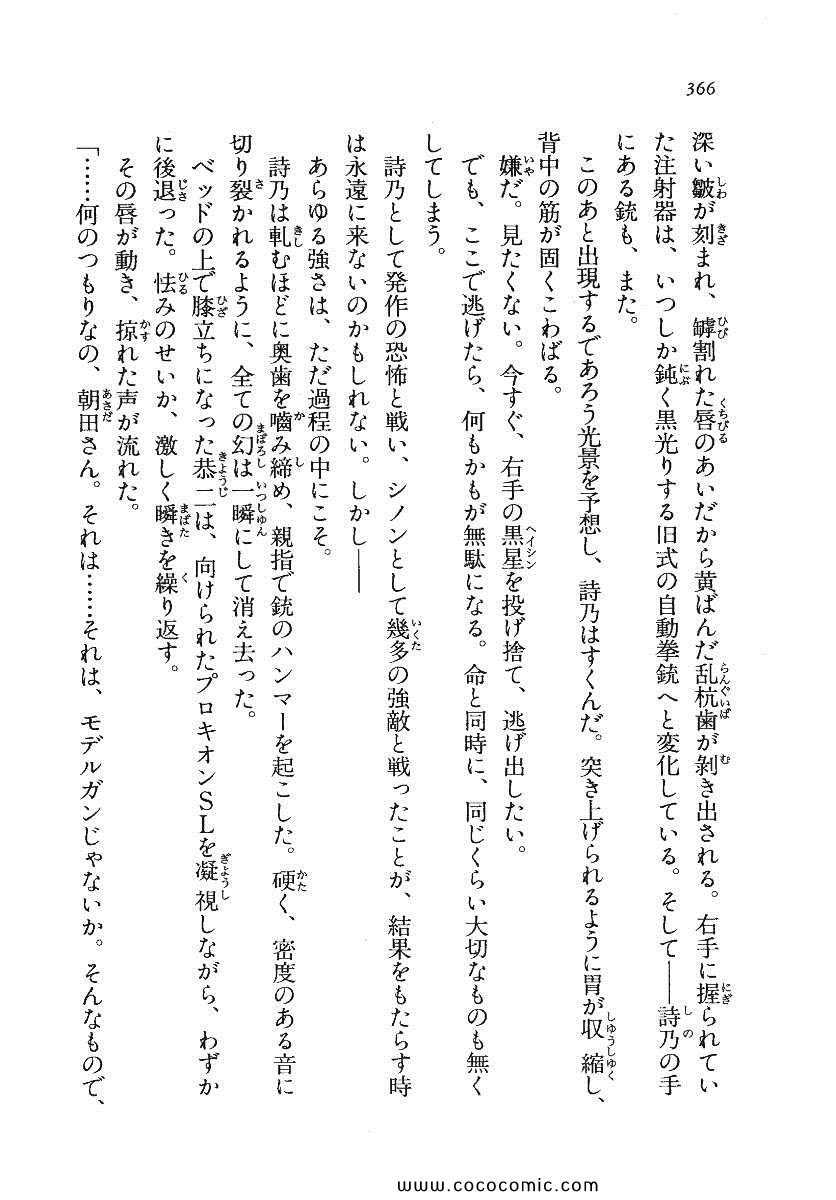 366
深い皺が刻まれ、罅割れた唇のあいだから黄ばんだ乱杭歯が剝き出される。右手に握られてい
た注射器は、いつしか鈍く黒光りする旧式の自動拳銃へと変化している。そして――詩乃の手
にある銃も、また。
このあと出現するであろう光景を予想し、詩乃はすくんだ。突き上げられるように胃が収縮し、
背中の筋が固くこわばる。
嫌だ。見たくない。今すぐ、右手の黒星を投げ捨て、逃げ出したい。
でも、ここで逃げたら、何もかもが無駄になる。命と同時に、同じくらい大切なものも無く
してしまう。
詩乃として発作の恐怖と戦い、シノンとして幾多の強敵と戦ったことが、結果をもたらす時
は永遠に来ないのかもしれない。しかし――
あらゆる強さは、ただ過程の中にこそ。
詩乃は軋むほどに奥歯を嚙み締め、親指で銃のハンマーを起こした。硬く、密度のある音に
切り裂かれるように、全ての幻は一瞬にして消え去った。
ベッドの上で膝立ちになった恭二は、向けられたプロキオンSLを凝視しながら、わずか
に後退った。怯みのせいか、激しく瞬きを繰り返す。
その唇が動き、掠れた声が流れた。
「……何のつもりなの、朝田さん。それは……それは、モデルガンじゃないか。そんなもので、
www.cococomic.com